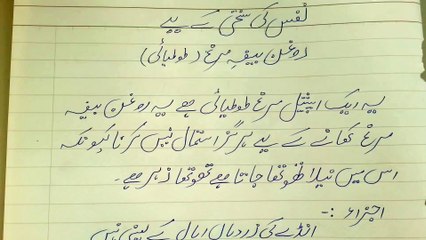 نفس کی سختی کے لیے
روغن بیضہ مرغ (طوطیائی)
یہ ایک اسپیشل مرغ طوطیائی ہے یہ روغن بیضہ
مرغ کھانے کے لیے ہرگز استعمال نہیں کرنا کیونکہ
اس میں نیلا تھوتھا جاتا ہے تھوتھا زہر ہے۔
اجزاء :-
انڈے کی زردیاں ابال کے لینی ہیں